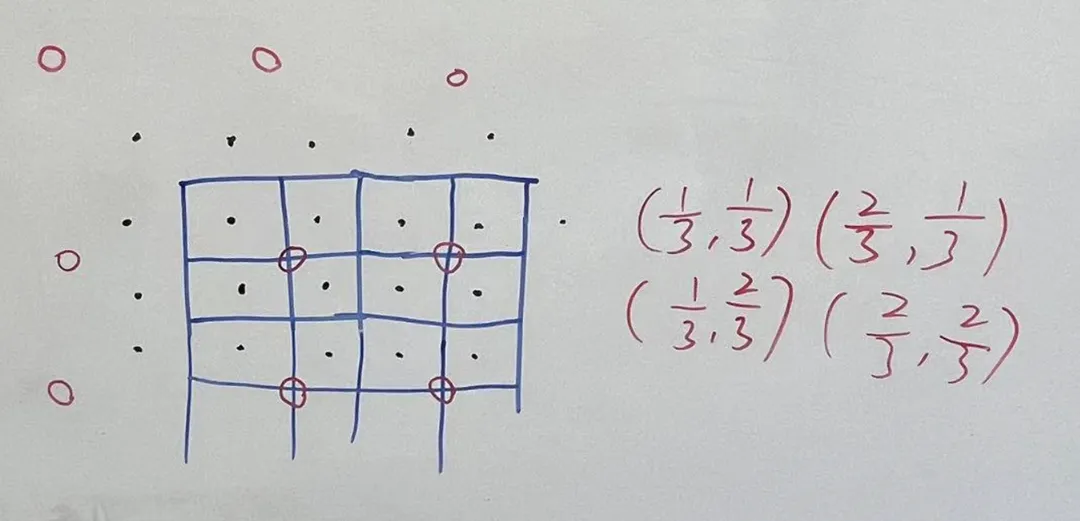 (1/3, 1/3) (2/3, 1/3)
(1/3, 2/3) (2/3, 2/3)